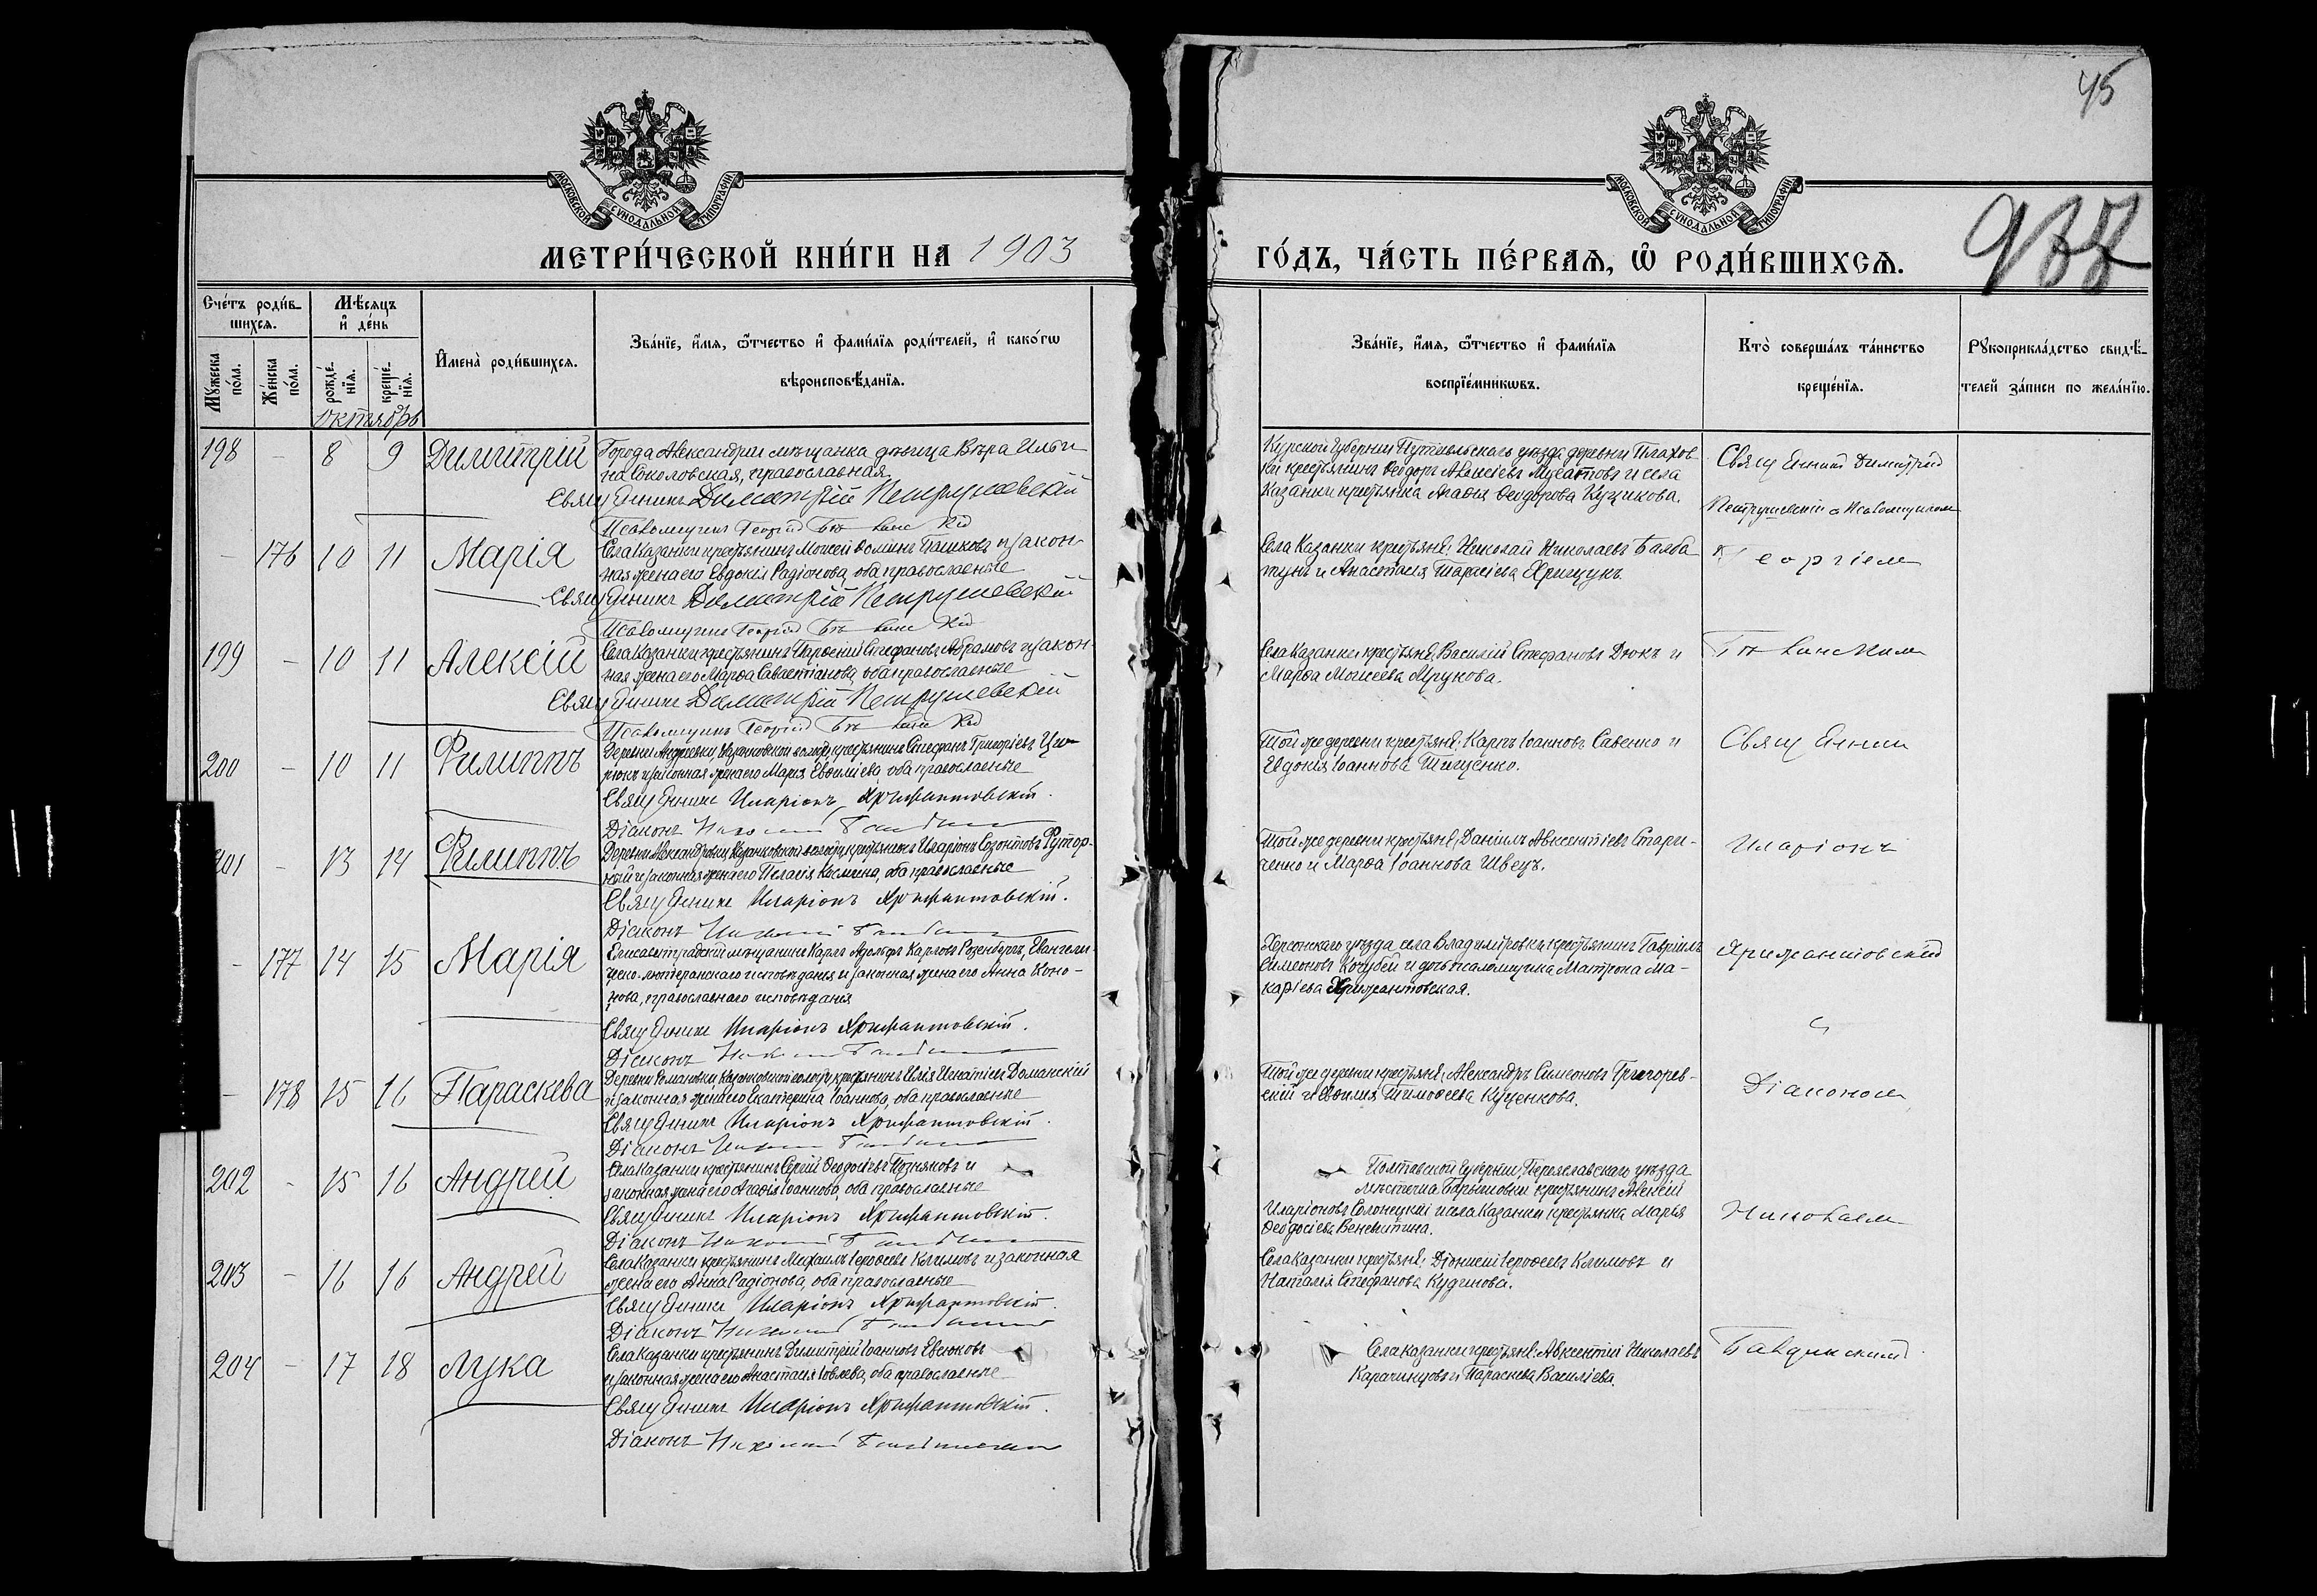 45
МОСКОВСКОЙ СѴНОДАЛЬНОЙ ТИПОГРАФІИ
МОСКОВСКОЙ СѴНОДАЛЬНОЙ ТИПОГРАФІИ
МЕТРИ́ЧЕСКОЙ КНИ́ГИ НА 1903
ГО́ДЪ, ЧА́СТЬ ПЕ́РВАЯ, Ѡ РОДИ́ВШИХСЯ.
Сче́тъ роди́в-
шихся.
Мѣ́сяцъ
и де́нь
Мꙋжеска
по́ла.
Же́нска
по́ла.
рожде́-
нїя.
креще́-
нїя.
Имена̀ роди́вшихся.
Зва́нїе, и́мя, ѻ҆́тчество и фами́лїя роди́телей, и како́гѡ
вѣроисповѣ́данїя.
Зва́нїе, и́мя, ѻ҆́тчество и фами́лїя
воспрїе́мникѡвъ.
Кто̀ соверша́лъ та́инство
креще́нїя.
Рꙋкоприкла́дство свидѣ́-
телей за́писи по жела́нїю.
Октябрь
198 - 8 9 Димитрій
Города Александріи мѣщанка дѣвица Вѣра Ильи-
на Соколовская, православная
Священникъ Димитрій Петрушевскій
Псаломщикъ Георгій
Курской Губерніи Путивльскаго уѣзда деревни
крестьянинъ Ѳеодоръ Алексіевъ и села
Казанки крестьянка Агаѳія Ѳеодорова Куцикова.
Священникъ Димитрій
Петрушевскій съ Псаломщикомъ
- 176 10 11 Марія
Села Казанки крестьянинъ Моисей Ѳоминъ Пашковъ и закон-
ная жена его Евдокія Радіонова, оба православные
Священникъ Димитрій Петрушевскій
Псаломщикъ Георгій
Села Казанки крестьяне: Николай Николаевъ Балба-
тунъ и Анастасія Тарасіева Хрищукъ.
Георгіем
199 - 10 11 Алексій
Села Казанки крестьянинъ Парѳеній Стефановъ Абрамовъ и закон-
ная жена его Марѳа Савастіанова, оба православные
Священникъ Димитрій Петрушевскій
Псаломщикъ Георгій
Села Казанки крестьяне: Василій Стефановъ Дюкъ и
Марѳа Моисеева Мрукова.
200 - 10 11 Филиппъ
Деревни Андреевки, Казанковской волости, крестьянинъ Стефанъ Григоріевъ Цю-
рюкъ и законная жена его Марія Евѳиміева, оба православные
Священникъ Иларіонъ Хрисанѳовскій.
Діаконъ Николай
Той же деревни крестьяне: Карпъ Іоанновъ Савенко и
Евдокія Іоаннова Тищенко.
Священник
201 - 13 14 Филиппъ
Деревни Александровки, Казанковской волости, крестьянинъ Иларіонъ Созонтовъ Рутор-
ный и законная жена его Пелагія Косьмина, оба православные
Священникъ Иларіонъ Хрисанѳовскій.
Діаконъ Николай
Той же деревни крестьяне: Даніилъ Авксентіевъ Стари-
ченко и Марѳа Іоаннова Швецъ.
Иларіонъ
- 177 14 15 Марія
Елисаветградскій мѣщанинъ Карлъ Адольфъ Карловъ Розенбергъ, Евангели-
ческо-лютеранскаго исповѣданія и законная жена его Анна Коно-
нова, православнаго исповѣданія
Священникъ Иларіонъ Хрисанѳовскій.
Діаконъ Николай
Херсонскаго уѣзда, села Владиміровки крестьянинъ Гавріилъ
Симеоновъ Кочубей и дочь псаломщика Матрона Ма-
каріева Хрисанѳовская.
Хрисанѳовскій
съ
- 178 15 16 Параскева
Деревни Романовки, Казанковской волости, крестьянинъ Илія Игнатіевъ Доманскій
и законная жена его Екатерина Іоаннова, оба православные
Священникъ Иларіонъ Хрисанѳовскій.
Діаконъ Николай
Той же деревни крестьяне: Александръ Симеоновъ Григорев-
скій и Евѳимія Тимоѳеева Куценкова.
Діакономъ
202 - 15 16 Андрей
Села Казанки крестьянинъ Сергій Ѳеодосіевъ Позняковъ и
законная жена его Агаѳія Іоаннова, оба православные
Священникъ Иларіонъ Хрисанѳовскій.
Діаконъ Николай
Полтавской Губерніи, Переяславскаго уѣзда
мѣстечка Барышовки крестьянинъ Алексій
Иларіоновъ Солонецкій и села Казанки крестьянка Марѳа
Ѳеодосіева Веневитина.
Николаем
203 - 16 16 Андрей
Села Казанки крестьянинъ Михаилъ Іероѳеевъ Климовъ и законная
жена его Анна Радіонова, оба православные
Священникъ Иларіонъ Хрисанѳовскій.
Діаконъ Николай
Села Казанки крестьяне: Діонисій Іероѳеевъ Климовъ и
Наталія Стефанова Кудинова.
204 - 17 18 Лука
Села Казанки крестьянинъ Димитрій Іоанновъ Евсюковъ
и законная жена его Анастасія Іовлева, оба православные
Священникъ Иларіонъ Хрисанѳовскій.
Діаконъ Николай
Села Казанки крестьяне: Авксентій Николаевъ
Карачинцовъ и Параскева Василіева.